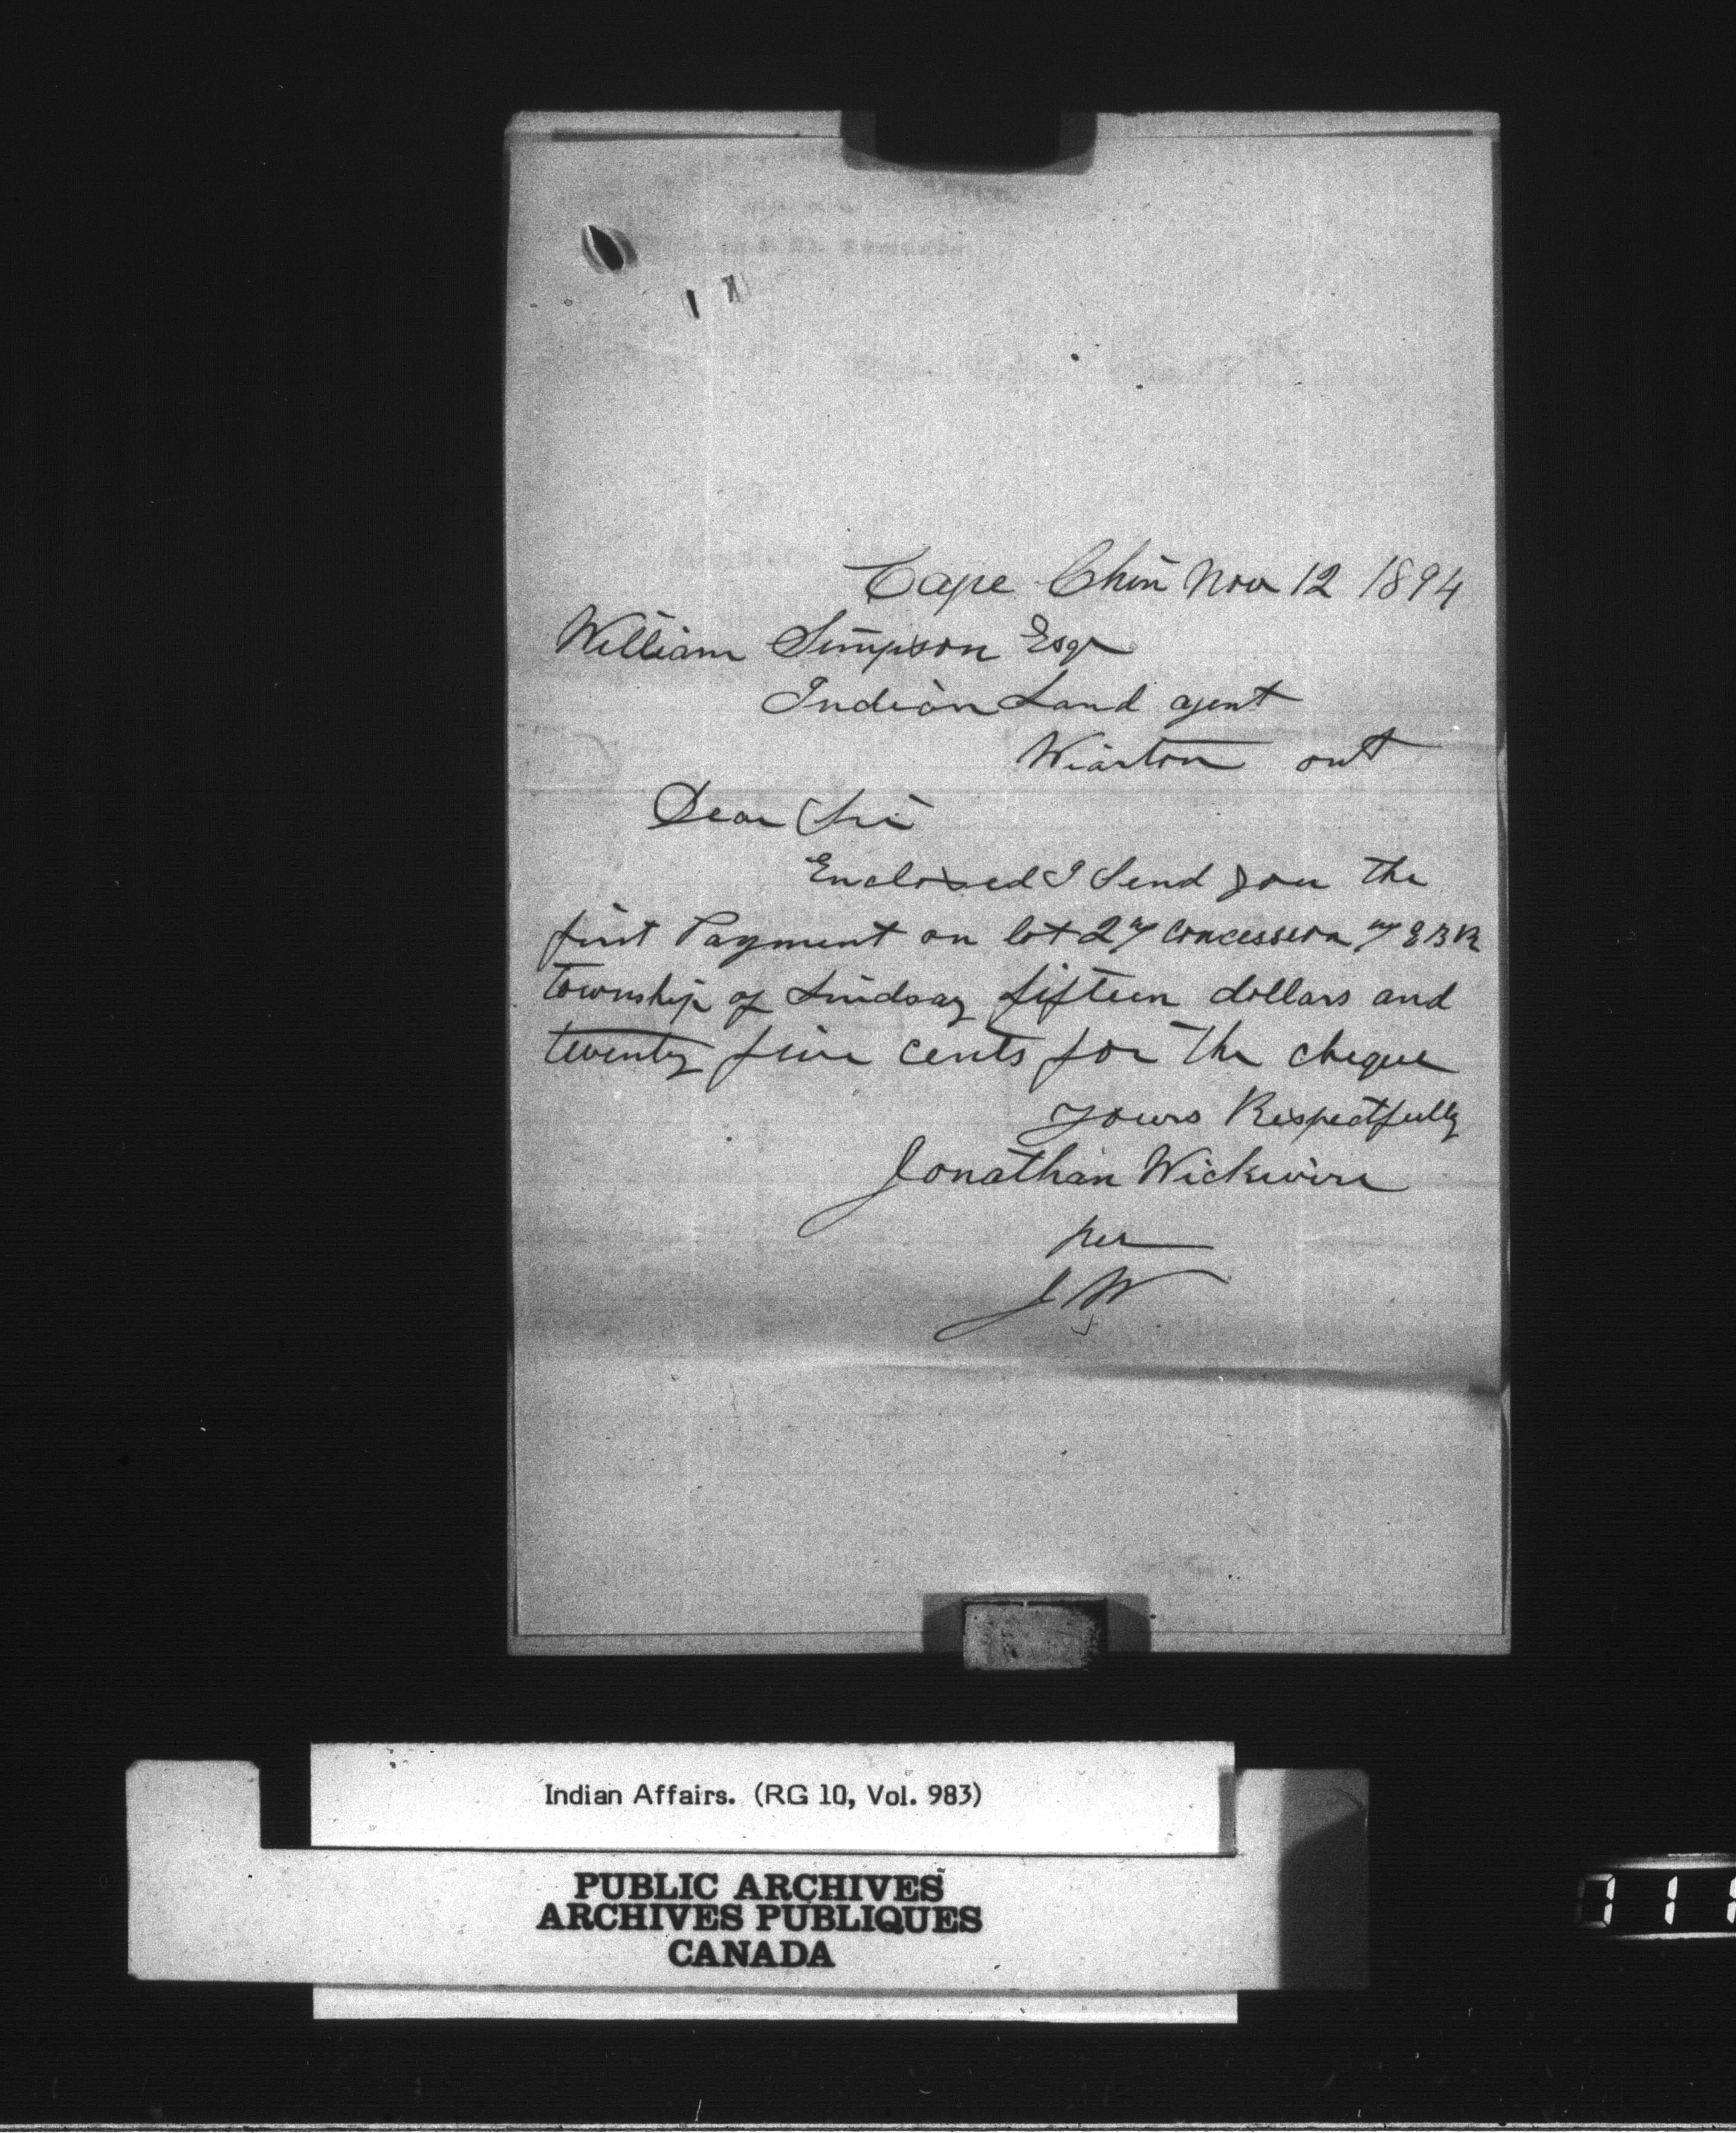 Cape Chin Nov 12 1894
William Simpson Esqr
Indian Land agent
Wiarton ont
Dear Sir
Enclosed I Send you the
first Payment on lot 27 concession 7 E B R
township of Lindsay fifteen dollars and
twenty five cents for the cheque
yours Respectfully
Jonathan Wickwire
per
J W
Indian Affairs. (RG 10, Vol. 983)
PUBLIC ARCHIVES
ARCHIVES PUBLIQUES
CANADA